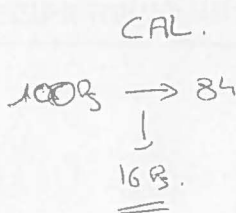 CAL.
100 g → 84
16 g.